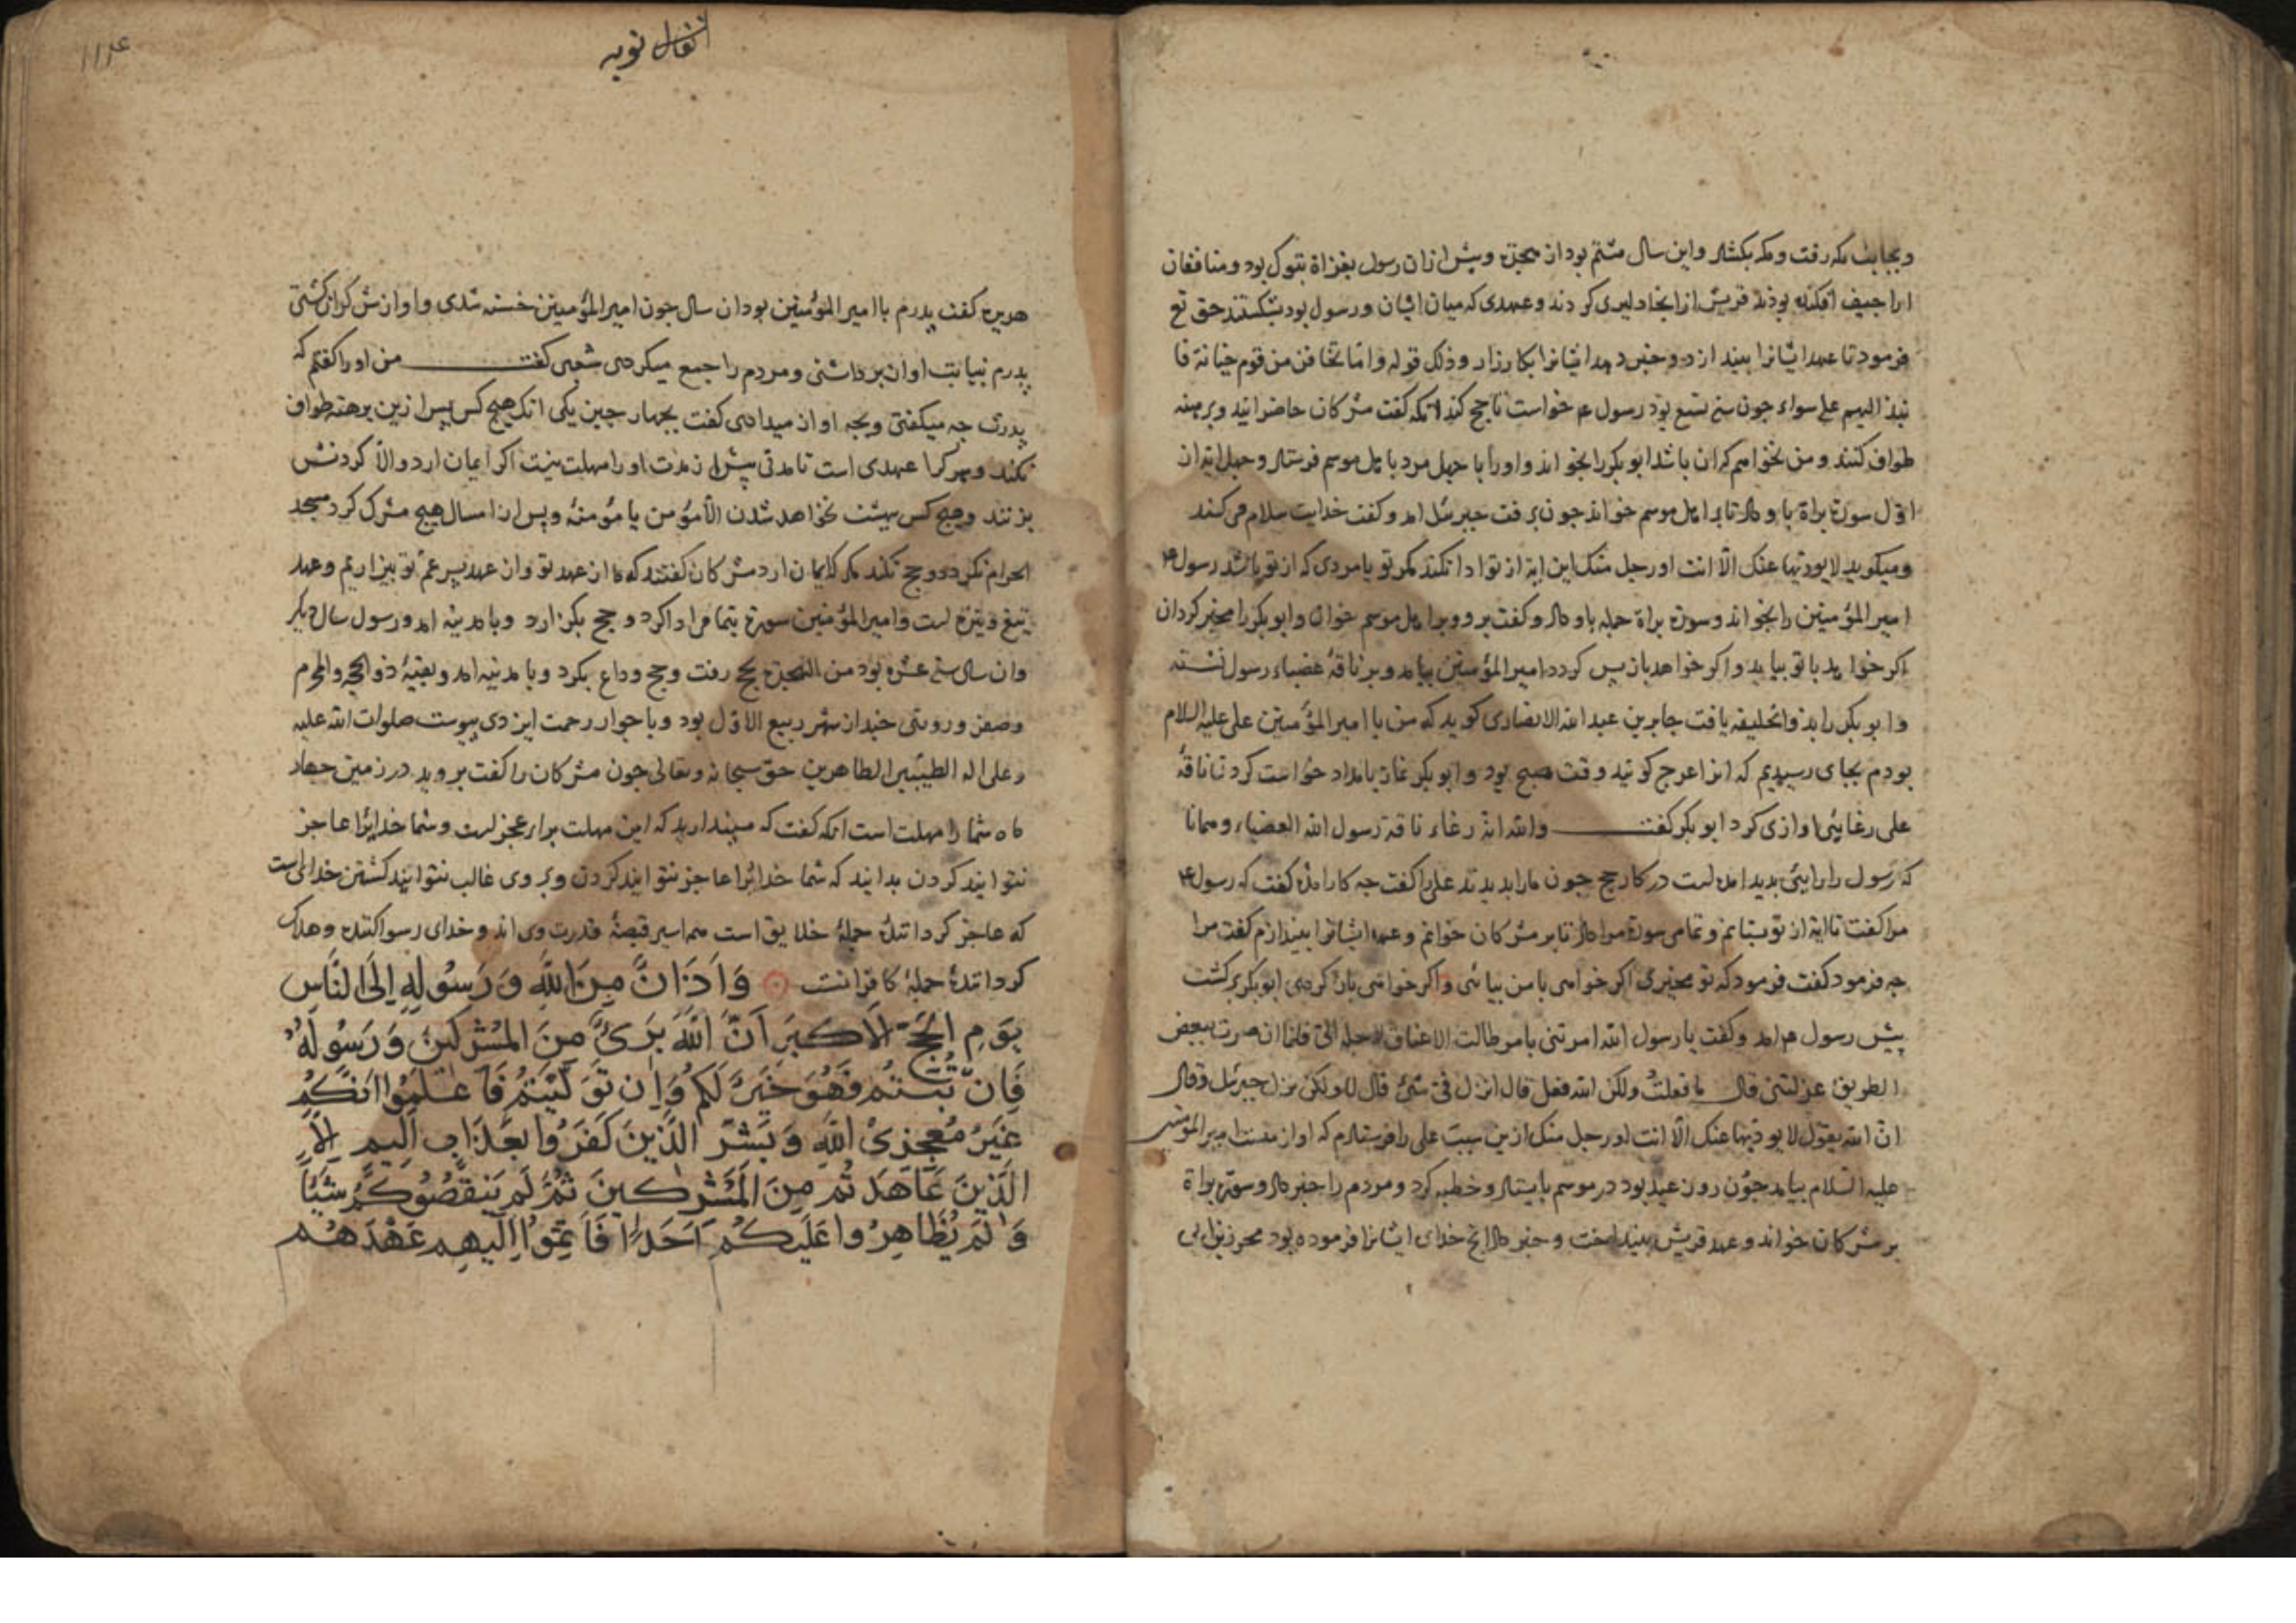 وبجانب مکه رفت ومکه بکشاد واین سال هشتم بود از هجرة وپیش ازان رسول بغزاة تبوک بود ومنافقان
اراجیف افکنده بودند قریش از انجا دلیری کردند وعهدی که میان ایشان ورسول بود بشکستند حق تع
فرمود تا عهد ایشانرا بیندازد وخبر دهد ایشانرا بکارزار وذلک قوله واما تخافن من قوم خیانة فا
نبذ الیهم علی سواء جون سنه تسع بود رسول ع خواست تا حج کند انکه کفت مشرکان حاضر ایند وبرهنه
طواف کنند ومن نخواهم کران باشد ابوبکر را بخواند واورا با جهل مرد با اهل موسم فرستاد وجهل ایة از
اول سورة براة باو داد تا بر اهل موسم خواند جون برفت جبرئیل امد وکفت خدایت سلام می کند
ومیکوید لا یودیها عنک الا انت اورجل منک این ایة از تو ادا نکند مکر تو یا مردی که از تو باشد رسول ع
امیر المؤمنین را بخواند وسورة براة جمله باو داد وکفت برو وبر اهل موسم خوان وابوبکر را مخیر کردان
اکر خواهد با تو بیاید واکر خواهد باز پس کردد امیر المؤمنین بیامد وبر ناقهٔ عضباء رسول نشسته
وابوبکر را بذوالحلیفه یافت جابر بن عبد الله الانصاری کوید که من با امیر المؤمنین علی علیه السلام
بودم بجای رسیدیم که انرا عرج کویند وقت صبح بود وابوبکر نماز بامداد خواست کرد تا ناقهٔ
علی رغایی اوازی کرد ابوبکر کفت والله انه رغاء ناقة رسول الله العضباء وهمانا
که رسول را رایئی بدید امده است در کار حج جون ما را بدیدند علی را کفت جه کار امدهٔ کفت که رسول ع
مرا کفت تا ایة از تو بستانم وتمامی سورة مرا داد تا بر مشرکان خوانم وعهد ایشانرا بیندازم کفت مرا
جه فرمود کفت فرمود که تو مخیری اکر خواهی با من بیائی واکر خواهی باز کردی ابوبکر برکشت
پیش رسول ع امد وکفت یا رسول الله امرتنی بامر طالت الاعناق لاجله الی فلما ان صرت ببعض
الطریق عزلتنی قال ما فعلت ولکن الله فعل قال انزل فی شیء قال لا ولکن نزل جبرئیل وقال
ان الله یقول لا یودیها عنک الا انت اورجل منک ازین سبب علی را فرستادم که او از منست امیر المؤمنین
علیه السلام بیامد جون روز عید بود در موسم بایستاد وخطبه کرد ومردم را خبر داد وسورة براة
بر مشرکان خواند وعهد قریش بینداخت وخبر داد انج خدای ایشانرا فرموده بود محرز بن ابی
انفال توبه
۱۱۴
هریره کفت پدرم با امیر المؤمنین بود ان سال جون امیر المؤمنین خسته شدی واوازش کران کشتی
پدرم نیابت اوان برداشتی ومردم را جمع میکردی شعبی کفت من اورا کفتم که
پدرت جه میکفتی وبجه اواز میدادی کفت بجهار جیز یکی انک هیچ کس پس ازین برهنه طواف
نکند وهر کرا عهدی است تا مدتی پیش از مدت اورا مهلت نیست اکر ایمان ارد والا کردنش
بزنند وهیچ کس ببهشت نخواهد شدن الا مؤمن یا مؤمنه وپس از امسال هیچ مشرک کرد مسجد
الحرام نکردد وحج نکند مکر که ایمان ارد مشرکان کفتند که ما از عهد تو وان عهد پسر عم تو بیزاریم وعهد
تیغ ونیزه است وامیر المؤمنین سورة بتمام ادا کرد وحج بکزارد وبا مدینه امد ورسول سال دیکر
وان سال سنه عشره بود من الهجرة بحج رفت وحج وداع بکرد وبا مدینه امد وبقیهٔ ذو الحجه والمحرم
وصفر وروزی جند از شهر ربیع الاول بود وبا جوار رحمت ایزدی پیوست صلوات الله علیه
وعلی اله الطیبین الطاهرین حق سبحانه وتعالی جون مشرکان را کفت بروید در زمین جهار
ماه شما را مهلت است انکه کفت که مپندارید که این مهلت برای عجز است وشما خدایرا عاجز
نتوانید کردن بدانید که شما خدایرا عاجز نتوانید کردن وبر وی غالب نتوانید کشتن خدای است
که عاجز کردانندهٔ جملهٔ خلایق است همه اسیر قبضهٔ قدرت وی اند وخدای رسوا کننده وهلاک
کردانندهٔ جملهٔ کافرانست وَاَذَانٌ مِنَ اللّٰهِ وَرَسُولِهِ اِلَی النَّاسِ
یَوْمَ الْحَجِّ الْاَکْبَرِ اَنَّ اللّٰهَ بَرِیءٌ مِنَ الْمُشْرِکِینَ وَرَسُولُهُ
فَاِنْ تُبْتُمْ فَهُوَ خَیْرٌ لَکُمْ وَاِنْ تَوَلَّیْتُمْ فَاعْلَمُوا اَنَّکُمْ
غَیْرُ مُعْجِزِی اللّٰهِ وَبَشِّرِ الَّذِینَ کَفَرُوا بِعَذَابٍ اَلِیمٍ اِلَّا
الَّذِینَ عَاهَدْتُمْ مِنَ الْمُشْرِکِینَ ثُمَّ لَمْ یَنْقُصُوکُمْ شَیْئًا
وَلَمْ یُظَاهِرُوا عَلَیْکُمْ اَحَدًا فَاَتِمُّوا اِلَیْهِمْ عَهْدَهُمْ